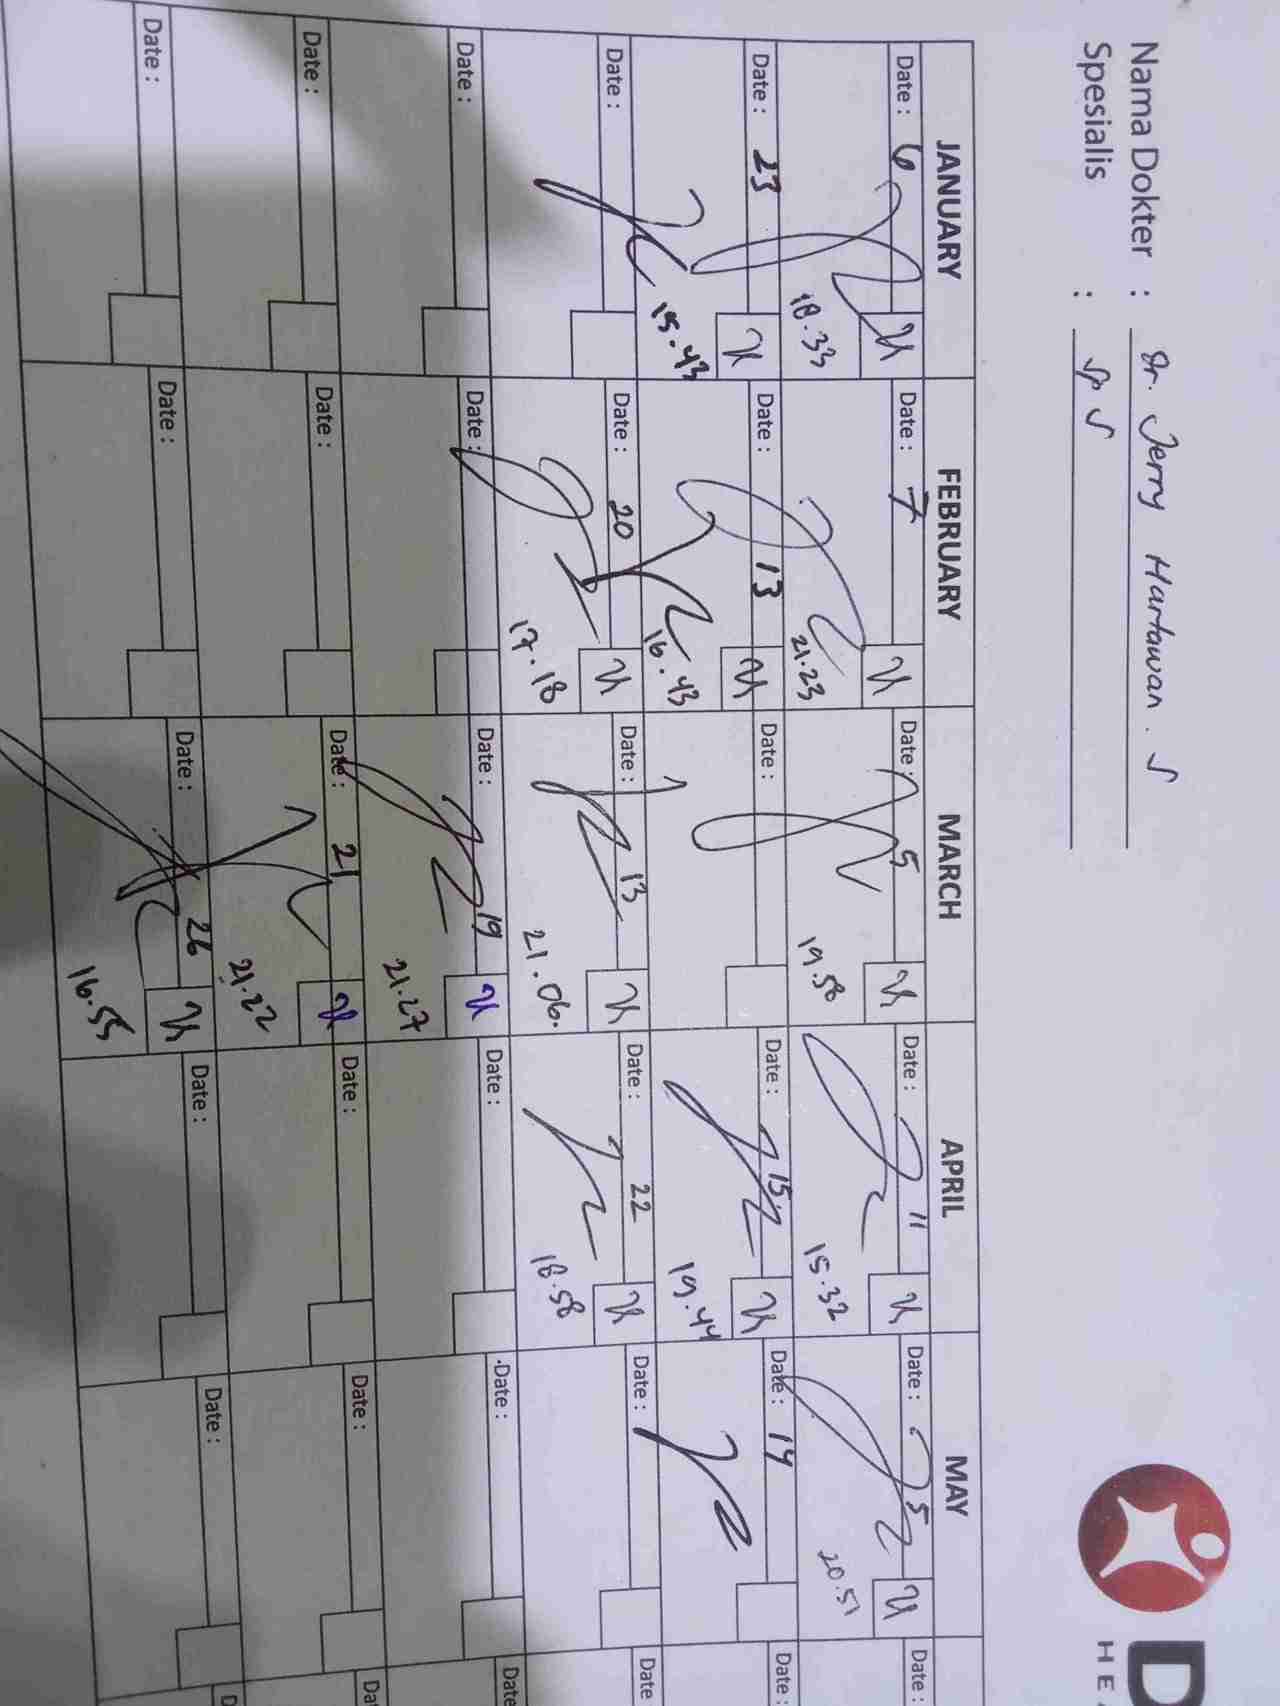 Nama Dokter : Dr. Jerry Hartawan. S
Spesialis : Sp S
D
HE
JANUARY FEBRUARY MARCH APRIL MAY
Date : 6 Date : 7 Date : 5 Date : 11 Date : 5 Date :
18.33 21.23 19.58 15.32 20.51
Date : 23 Date : 13 Date : Date : 15 Date : 14 Date :
15.43 16.43 19.44
Date : Date : 20 Date : 13 Date : 22 Date : Date
17.18 21.06. 18.58
Date : Date : Date : 19 Date : Date : Date
21.27
Date : Date : Date : 21 Date : Date : Dat
21.22
Date : Date : Date : 26 Date : Date : D
16.55